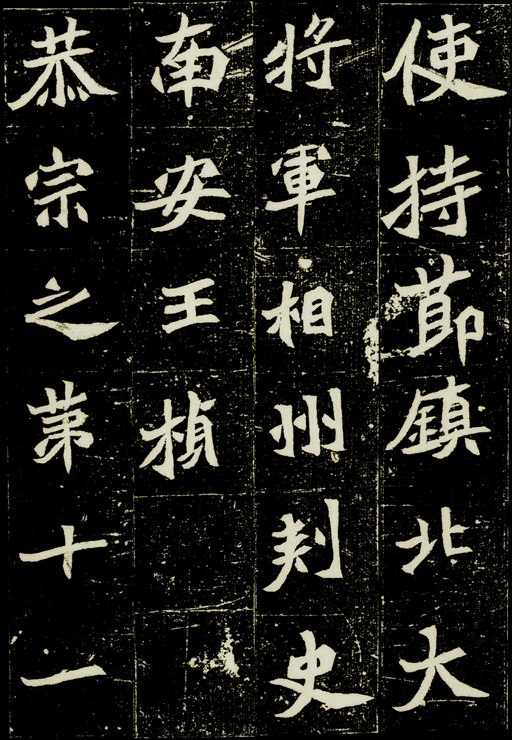 使持節鎮北大
將軍相州刺史
南安王楨
恭宗之第十一